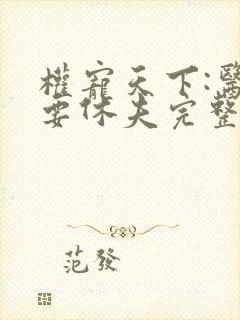 權寵天下:醫
要休夫完整
范發